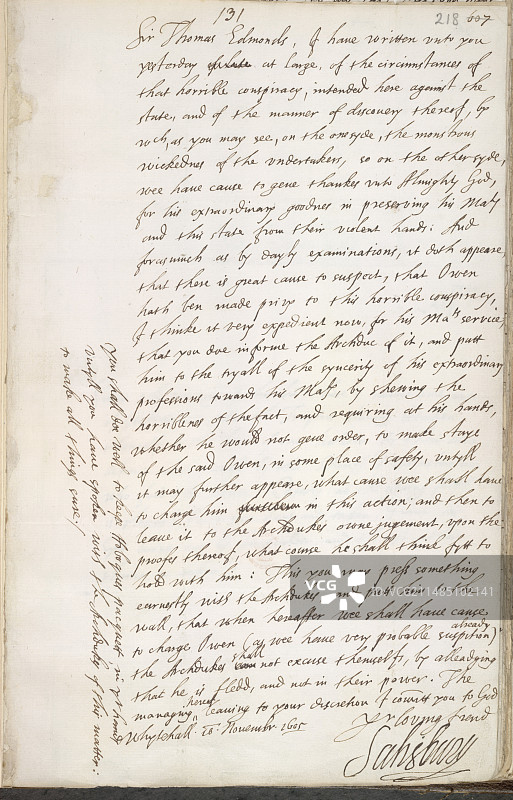 131
218 607
Sir Thomas Edmonds, I have written vnto you
yesterday at large, of the circumstances of
that horrible conspiracy, intended here against the
state, and of the manner of discovery thereof, by
wch, as you may see, on the one syde, the monstrous
wickednes of the vndertakers, so on the other syde,
wee have cause to geue thankes vnto Almighty God,
for his extraordinary goodnes in preserving his Maty
and this state from their violent hands: And
forasmuch as by dayly examinations, it doth appeare,
that there is great cause to suspect, that Owen
hath ben made privy to this horrible conspiracy,
I thinke it very expedient now, for his Mats service,
that you doe informe the Archduc of it, and putt
him to the tryall of the syncerity of his extraordinary
professions towards his Maty, by shewing the
horriblenes of the fact, and requiring at his hands,
whether he would not geue order, to make staye
of the said Owen, in some place of safety, vntyll
it may further appeare, what cause wee shall have
to charge him in this action; and then to
leave it to the Archdukes owne jugement, vpon the
proofes thereof, what course he shall think fytt to
hold with him: This you may press something
earnestly with the Archdukes and
wall, that when hereafter wee shall have cause
to charge Owen (as wee have very probable suspition already)
the Archdukes shall not excuse themselfs, by alleadging
that he is fledd, and not in their power. The
managing hereof leaving to your discretion I comitt you to God
Whytehall. 10. November 1605
Yr loving frend
Salisbury
you shall doe well to keepe Hobogius pacquett in yr hands
vntyll you have spoken with the Archdukes of this matter:
to make all things sure./
VCG